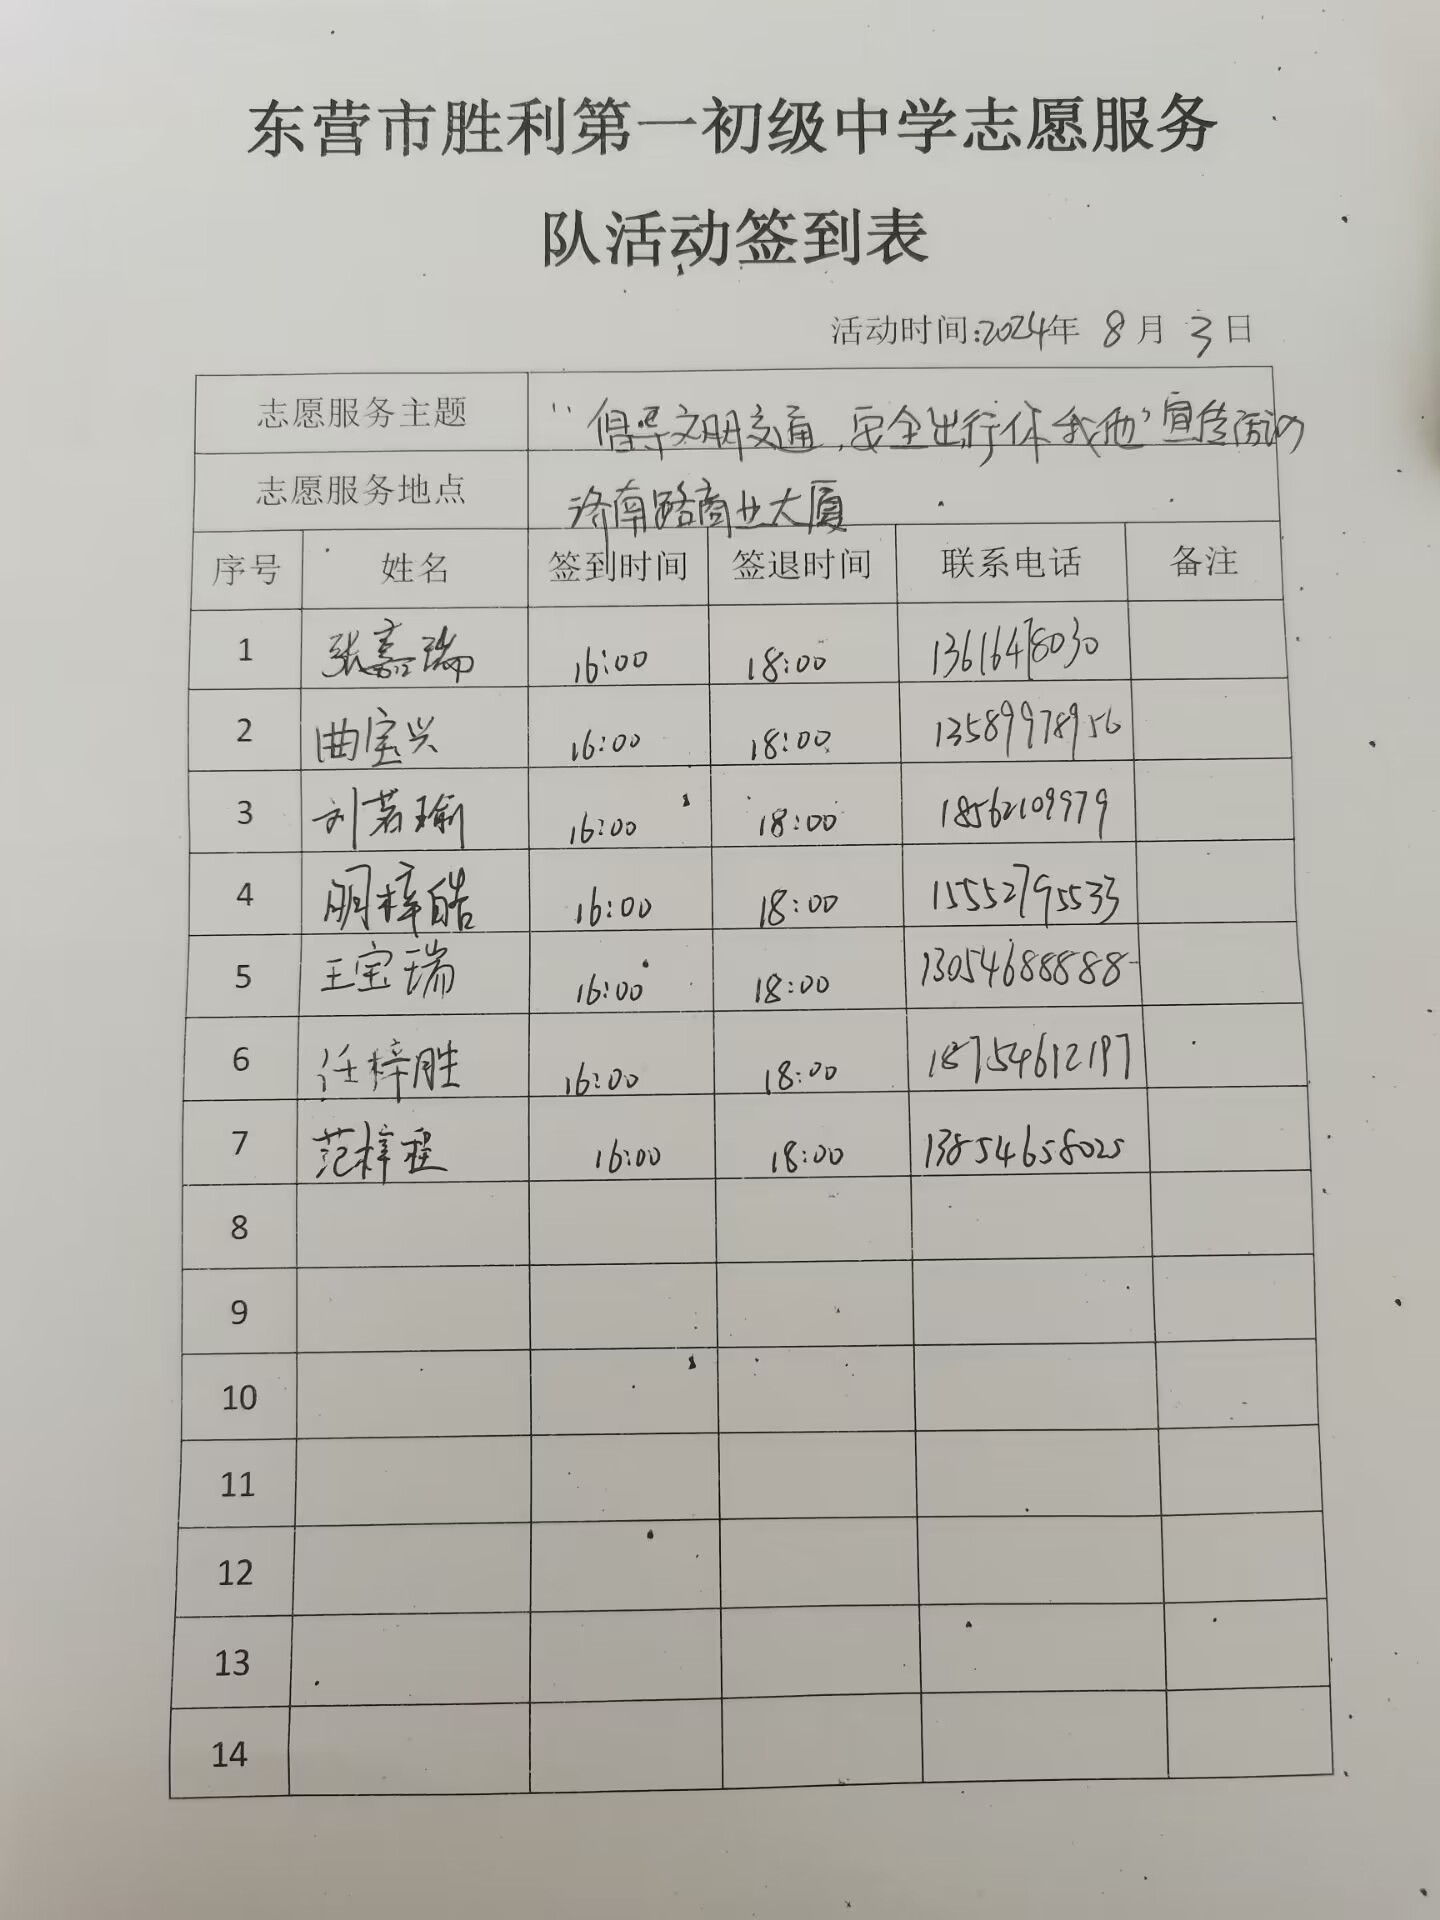 东营市胜利第一初级中学志愿服务
队活动签到表
活动时间:2024年 8月 3日
志愿服务主题 “倡导文明交通,安全出行你我他”宣传活动
志愿服务地点 济南路商业大厦
序号 姓名 签到时间 签退时间 联系电话 备注
1 张嘉瑞 16:00 18:00 13616478030
2 曲宝兴 16:00 18:00 13589978956
3 刘若瑜 16:00 18:00 18562109979
4 明梓皓 16:00 18:00 15552795533
5 王宝瑞 16:00 18:00 13054688888
6 任梓胜 16:00 18:00 18754612197
7 范梓程 16:00 18:00 13854658025
8
9
10
11
12
13
14